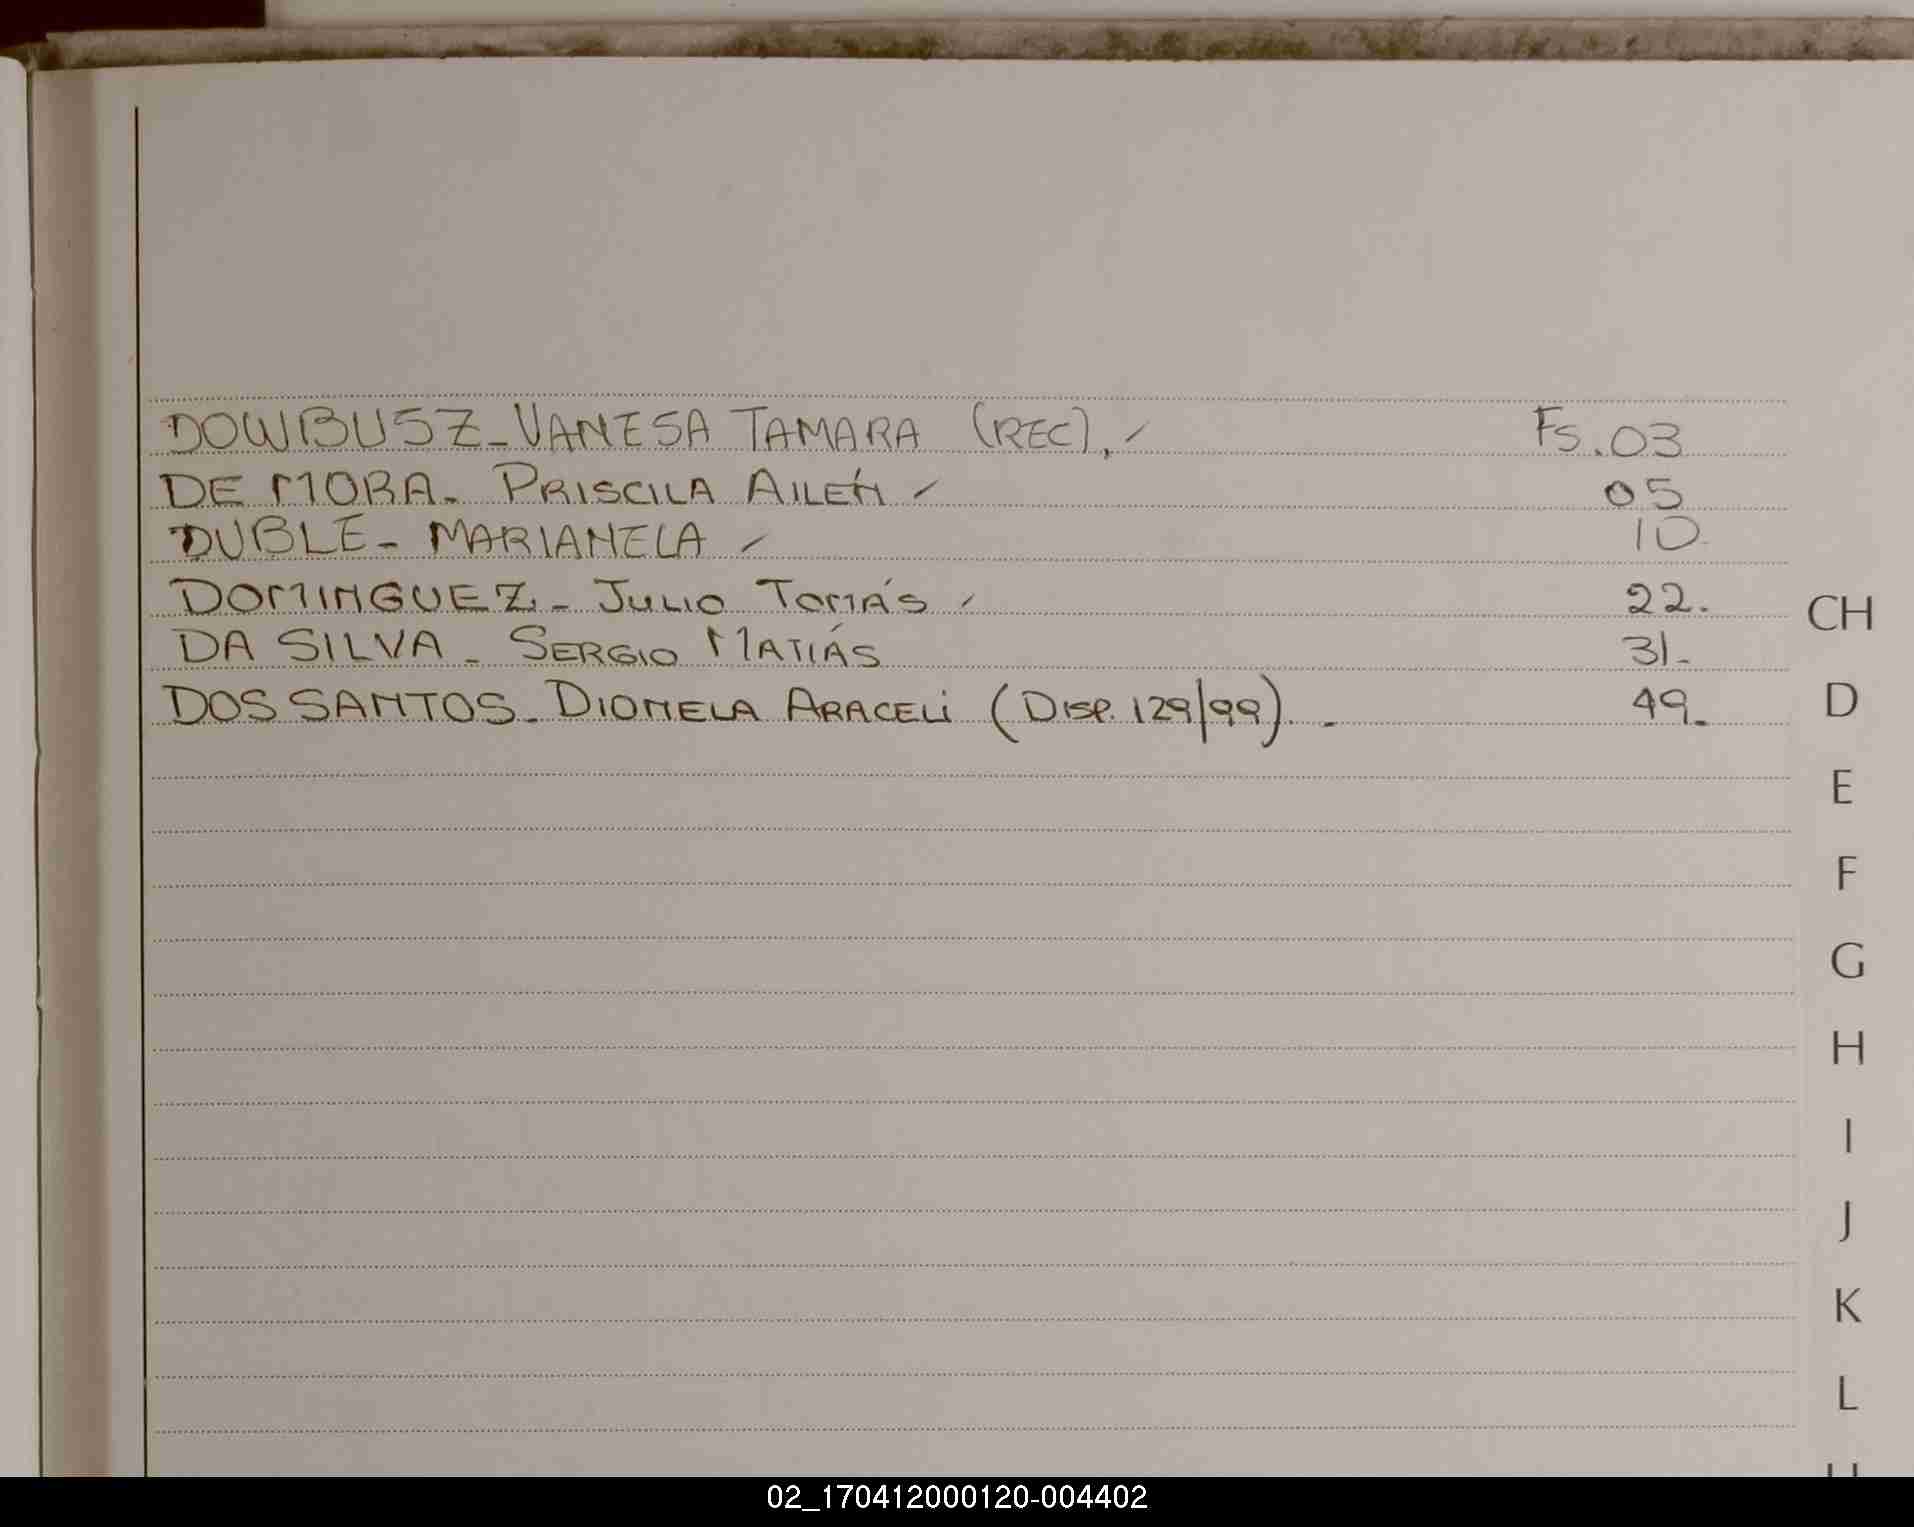 DOWBUSZ_VANESA TAMARA (REC). ✓ Fs. 03
DE MORA. PRISCILA AILÉN ✓ 05
DUBLE - MARIANELA ✓ 10
DOMINGUEZ - JULIO TOMÁS ✓ 22.
DA SILVA - SERGIO MATÍAS 31.
DOS SANTOS. DIONELA ARACELi (DISP. 129/99). - 49.
CH
D
E
F
G
H
I
J
K
L
02_170412000120-004402